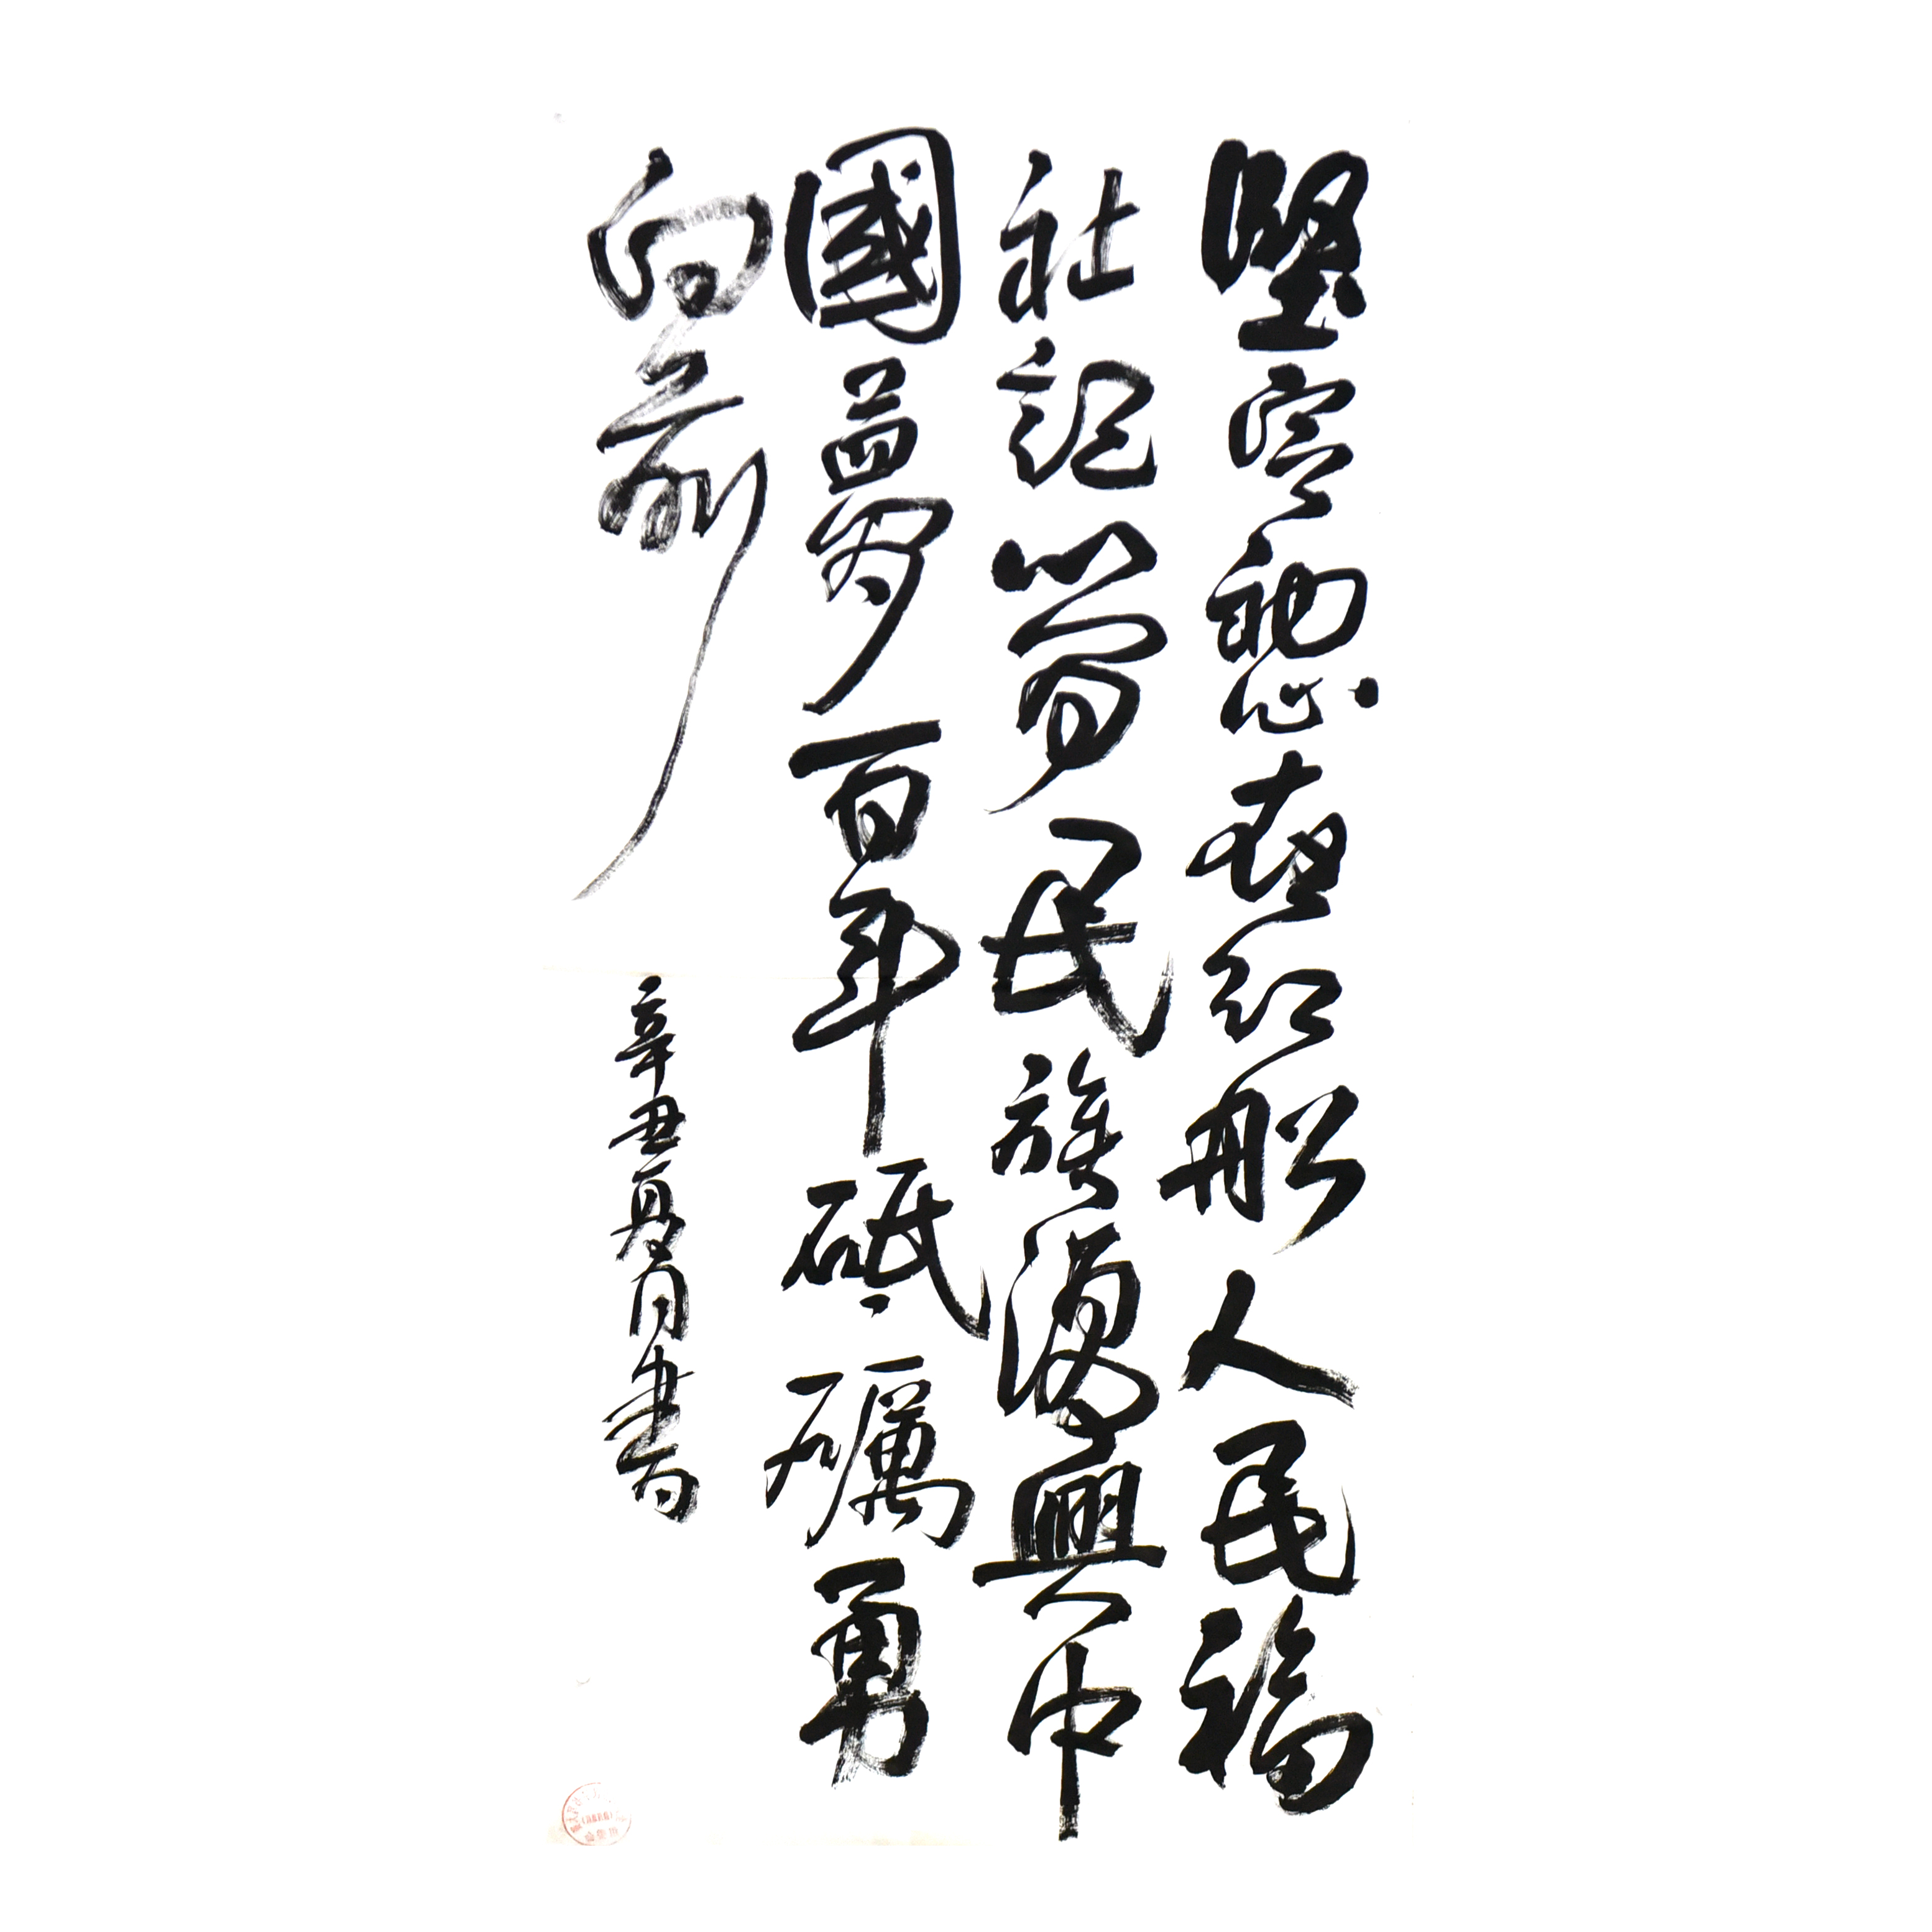 堅守初心红船人民福
祉記心間民族復興中
國夢百年砥礪勇
向前
辛丑夏月書